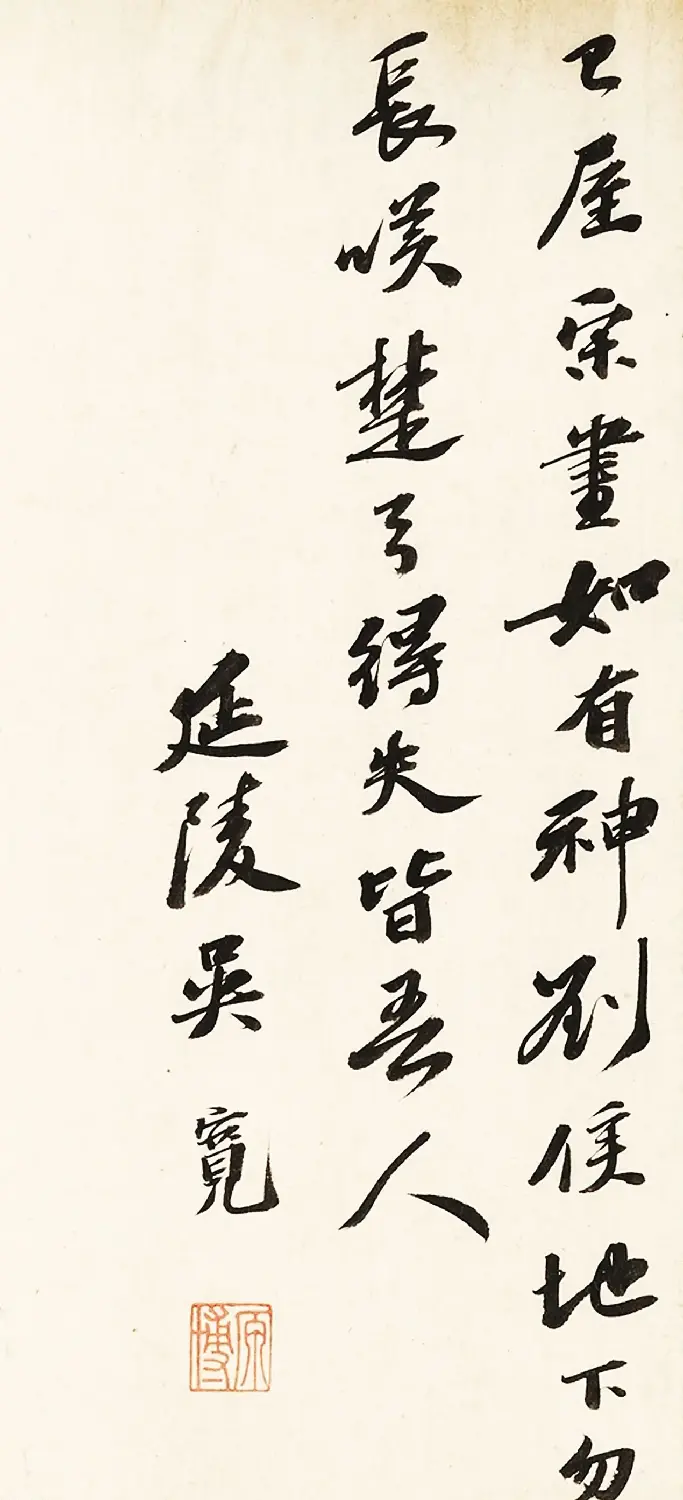 已屋宋畫如有神劉侯地下勿
長嘆楚弓得失皆吾人
延陵吳寬
原博